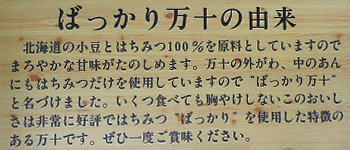 ばっかり万十の由来
北海道の小豆とはちみつ100％を原料としていますので
まろやかな甘味がたのしめます。万十の外がわ、中のあん
にもはちみつだけを使用していますので“ばっかり万十”
と名づけました。いくつ食べても胸やけしないこのおいし
さは非常に好評ではちみつ“ばっかり”を使用した特徴の
ある万十です。ぜひ一度ご賞味ください。